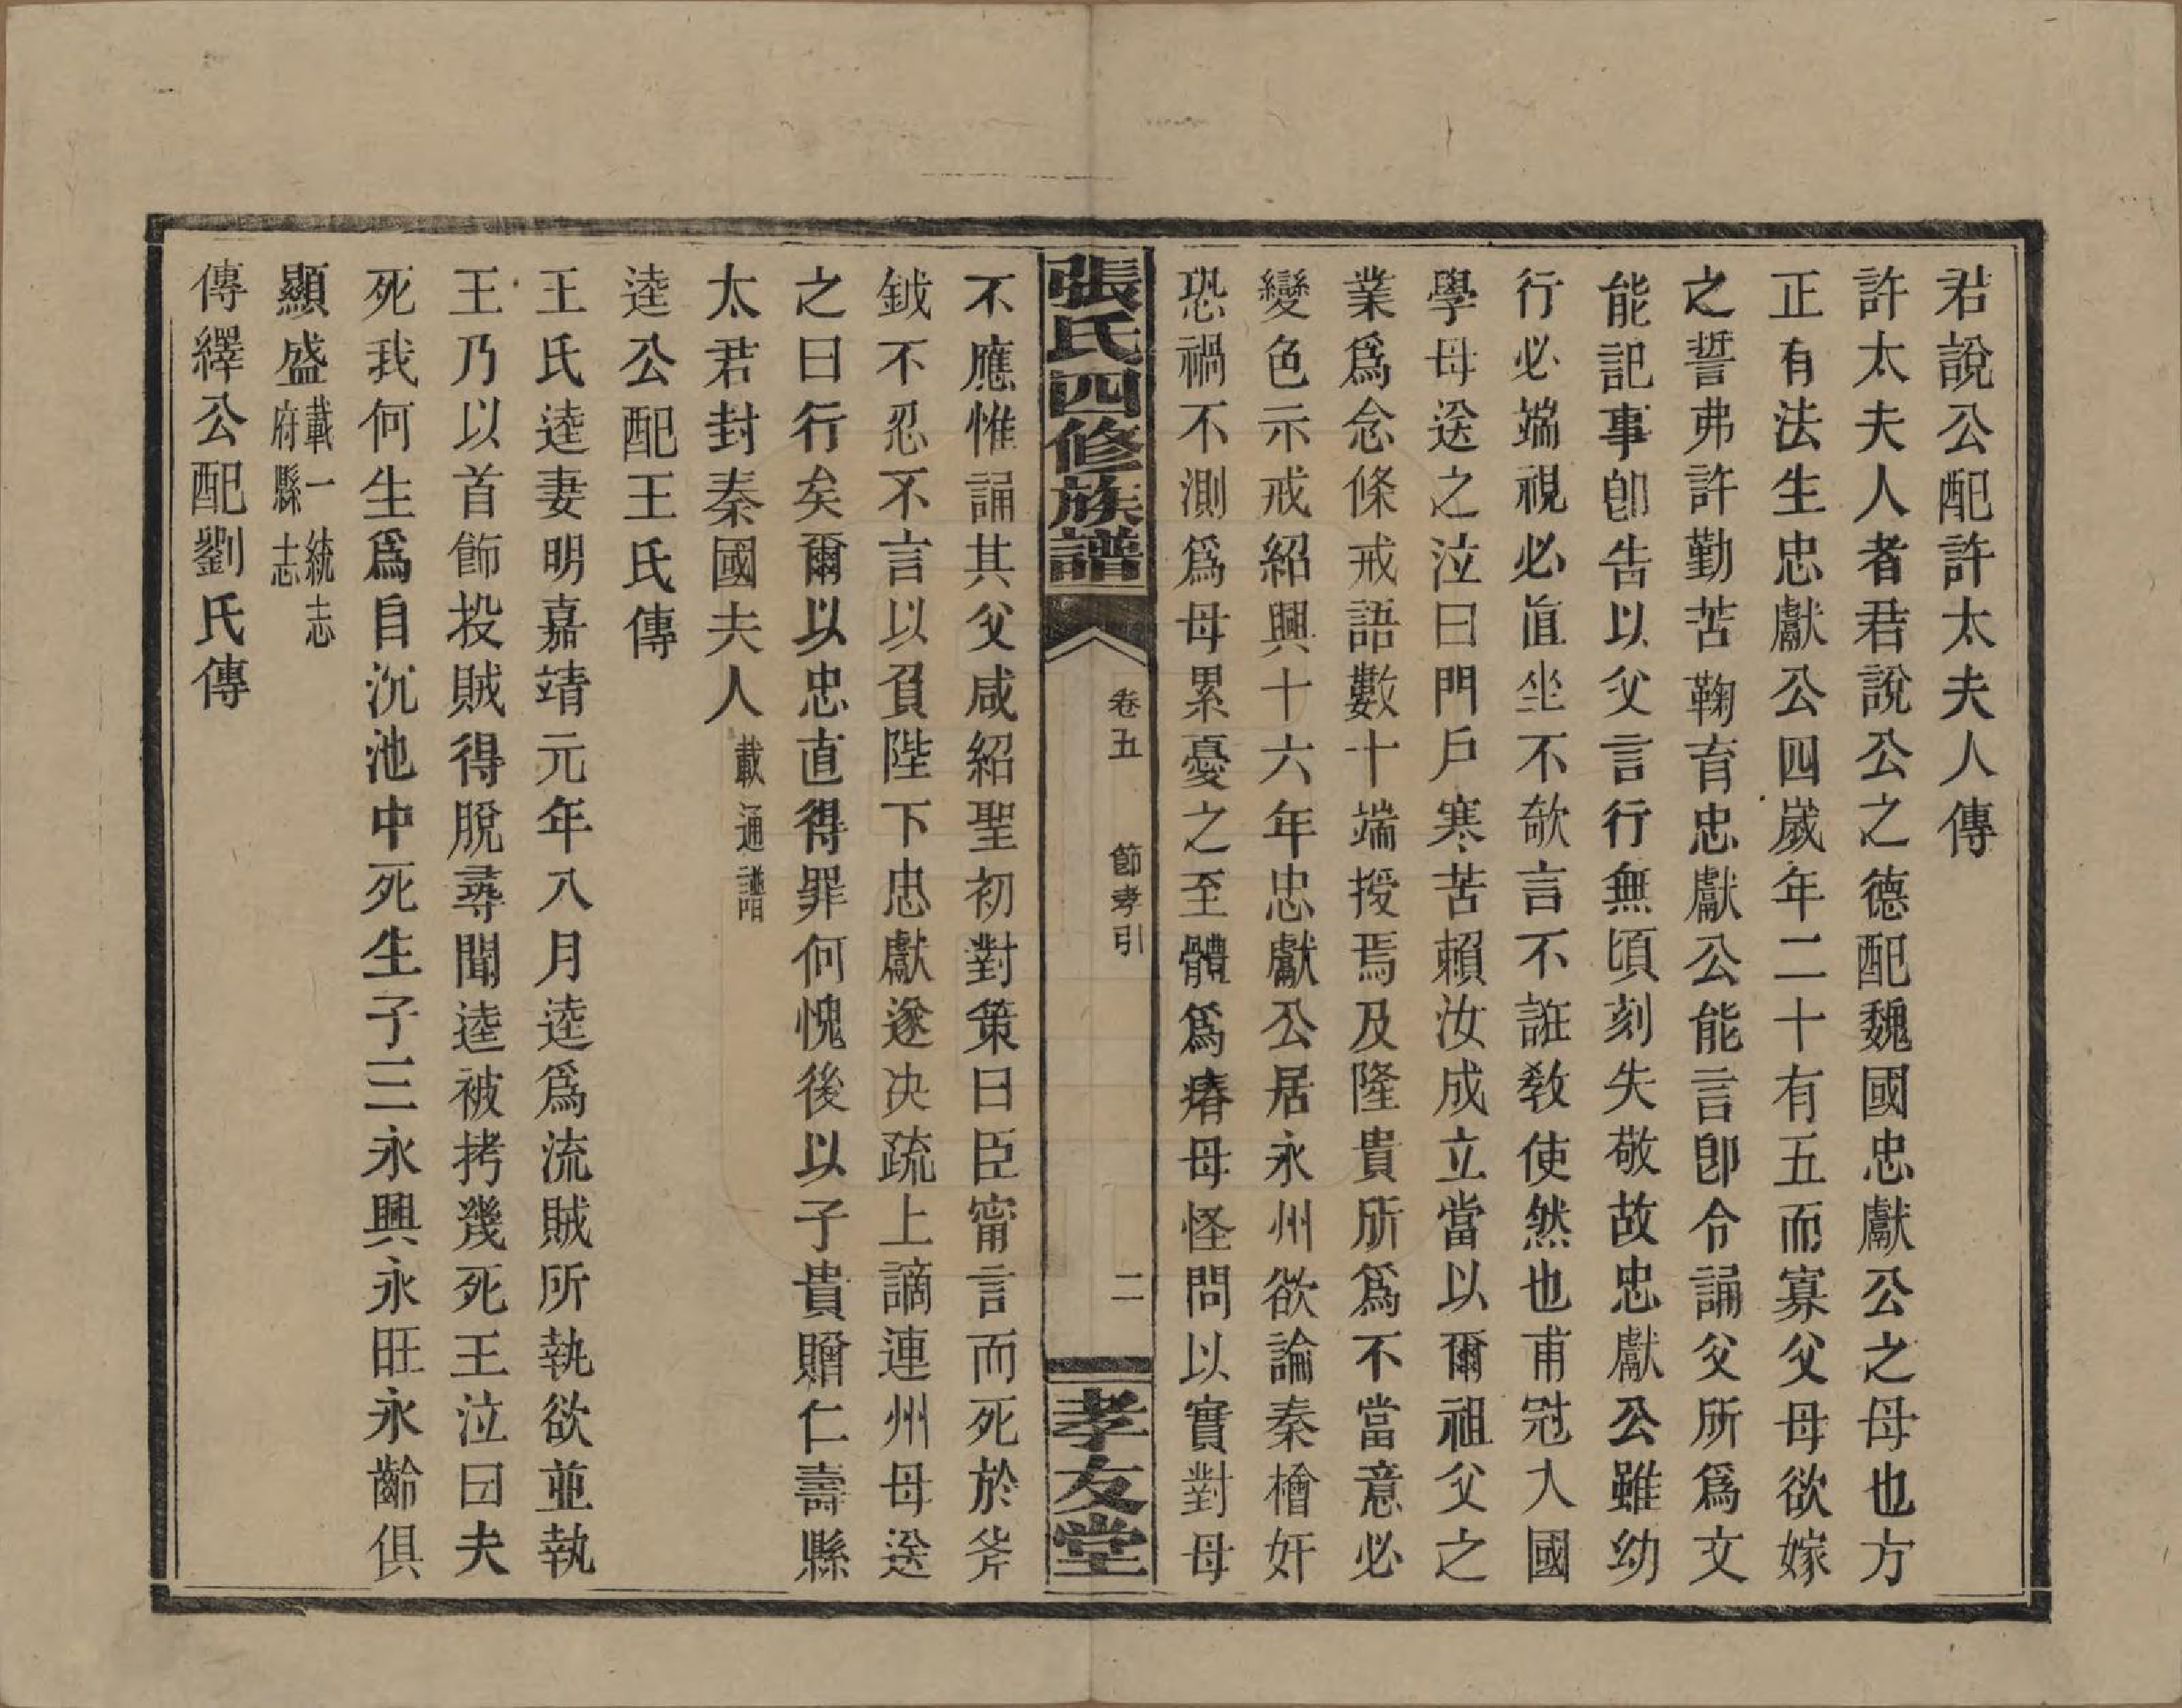 君說公配許太夫人傳
許太夫人者君說公之德配魏國忠獻公之母也方
正有法生忠獻公四歲年二十有五而寡父母欲嫁
之誓弗許勤苦鞠育忠獻公能言卽令誦父所爲文
能記事卽告以父言行無頃刻失敬故忠獻公雖幼
行必端視必直坐不欹言不誑敎使然也甫冠入國
學母送之泣曰門戶寒苦賴汝成立當以爾祖父之
業爲念條戒語數十端授焉及隆貴所爲不當意必
變色示戒紹興十六年忠獻公居永州欲論秦檜奸
恐禍不測爲母累憂之至體爲瘠母怪問以實對母
張氏四修族譜
卷五
節孝引
二
孝友堂
不應惟誦其父咸紹聖初對策曰臣甯言而死於斧
鉞不忍不言以負陛下忠獻遂決疏上謫連州母送
之曰行矣爾以忠直得罪何愧後以子貴贈仁壽縣
太君封秦國夫人載通譜
逵公配王氏傳
王氏逵妻明嘉靖元年八月逵爲流賊所執欲並執
王乃以首飾投賊得脫尋聞逵被拷幾死王泣曰夫
死我何生爲自沉池中死生子三永興永旺永齡俱
顯盛載一統志府縣志
傳繹公配劉氏傳